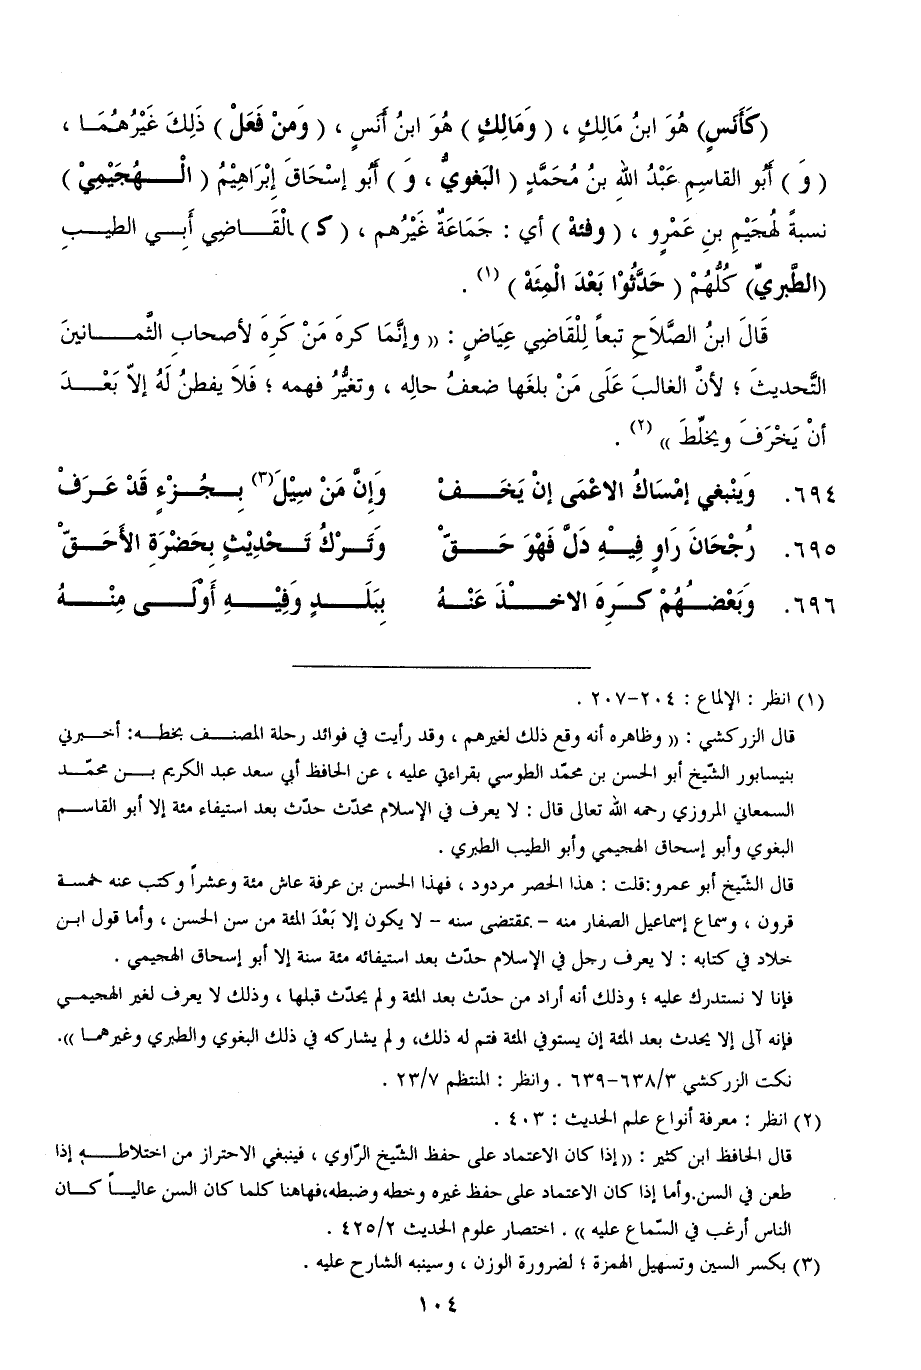 (كَأَنَسٍ) هُوَ ابنُ مَالِكٍ ، ( وَمَالِكٍ ) هُوَ ابنُ أَنَسٍ ، ( وَمَنْ فَعَلْ ) ذَلِكَ غَيْرُهُمَا ،
( وَ ) أَبُو القاسِمِ عَبْدُ اللهِ بنُ مُحَمَّدٍ ( البَغويُّ ، وَ ) أَبُو إسْحَاقَ إبْرَاهِيْمُ ( الْهُجَيْمِيْ )
نسبةً لهُجَيْمِ بنِ عَمْرٍو ، ( وفئهْ ) أي : جَمَاعَةٌ غَيْرُهم ، ( كـ ) الْقَاضِي أَبِي الطيبِ
(الطَّبريِّ) كُلُّهُمْ ( حَدَّثُوْا بَعْدَ الْمِئَهْ ) (١) .
قَالَ ابنُ الصَّلاَحِ تبعاً لِلْقَاضِي عِيَاضٍ : (( وإنَّمَا كرهَ مَنْ كَرِهَ لأصحابِ الثَّمانينَ
التَّحديثَ ؛ لأنَّ الغالبَ عَلَى مَنْ بلغَها ضعفُ حالِه ، وتغيُّر فهمه ؛ فَلاَ يفطنُ لَهُ إلاّ بَعْدَ
أنْ يَخْرَفَ ويخلِّطَ )) (٢) .
٦٩٤. وَيَنْبغي إمْسَاكُ الاعْمَى إنْ يَخَفْ وَإنَّ مَنْ سِيْلَ(٣) بِجُزْءٍ قَدْ عَرَفْ
٦٩٥. رُجْحَانَ رَاوٍ فِيْهِ دَلَّ فَهْوَ حَقّْ وَتَرْكُ تَحْدِيْثٍ بِحَضْرَةِ الأَحَقّْ
٦٩٦. وَبَعْضُهُمْ كَرِهَ الاخْذَ عَنْهُ بِبَلَدٍ وَفِيْهِ أَوْلَى مِنْهُ
(١) انظر : الإلماع : ٢٠٤-٢٠٧ .
قال الزركشي : (( وظاهره أنه وقع ذلك لغيرهم ، وقد رأيت في فوائد رحلة المصنف بخطه: أخبرني
بنيسابور الشّيخ أبو الحسن بن محمّد الطوسي بقراءتي عليه ، عن الحافظ أبي سعد عبد الكريم بن محمّد
السمعاني المروزي رحمه الله تعالى قال : لا يعرف في الإسلام محدّث حدّث بعد استيفاء مئة إلا أبو القاسم
البغوي وأبو إسحاق الهجيمي وأبو الطيب الطبري .
قال الشّيخ أبو عمرو:قلت : هذا الحصر مردود ، فهذا الحسن بن عرفة عاش مئة وعشراً وكتب عنه خمسة
قرون ، وسماع إسماعيل الصفار منه - بمقتضى سنه - لا يكون إلا بَعْدَ المئة من سن الحسن ، وأما قول ابن
خلاد في كتابه : لا يعرف رجل في الإسلام حدّث بعد استيفائه مئة سنة إلا أبو إسحاق الهجيمي .
فإنا لا نستدرك عليه ؛ وذلك أنه أراد من حدّث بعد المئة ولم يحدّث قبلها ، وذلك لا يعرف لغير الهجيمي
فإنه آلى إلا يحدث بعد المئة إن يستوفي المئة فتم له ذلك، ولم يشاركه في ذلك البغوي والطبري وغيرهما )).
نكت الزركشي ٦٣٨/٣-٦٣٩ . وانظر : المنتظم ٢٣/٧ .
(٢) انظر : معرفة أنواع علم الحديث : ٤٠٣ .
قال الحافظ ابن كثير : (( إذا كان الاعتماد على حفظ الشّيخ الرّاوي ، فينبغي الاحتراز من اختلاطه إذا
طعن في السن.وأما إذا كان الاعتماد على حفظ غيره وخطه وضبطه،فهاهنا كلما كان السن عالياً كان
الناس أرغب في السّماع عليه )) . اختصار علوم الحديث ٤٢٥/٢ .
(٣) بكسر السين وتسهيل الهمزة ؛ لضرورة الوزن ، وسينبه الشارح عليه .
١٠٤